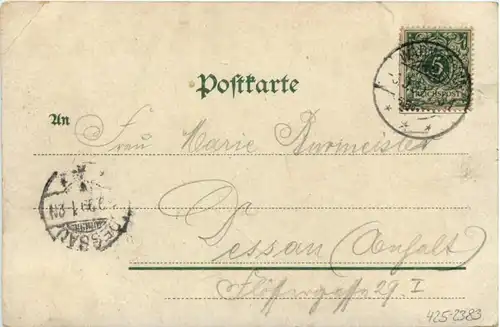 5
REICHSPOST
Postkarte
An Frau Marie Burmeister
DESSAU
Dessau (Anhalt)
29. I
425-2383